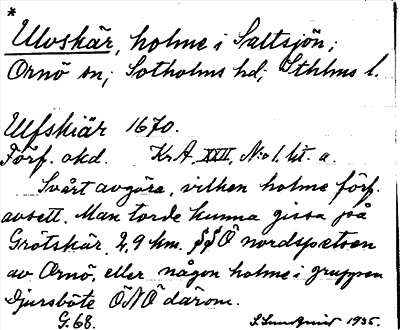 *
Ulvskär, holme i Saltsjön;
Ornö sn; Sotholms hd; Sthlms l.
Ulfskiär 1670.
Förf. okd. Kr A, XXII, No 1. lit. a.
Svårt avgöra, vilken holme förf.
avsett. Man torde kunna gissa på
Grötskär 2,9 km. SSÖ nordspetsen
av Ornö, eller någon holme i gruppen
Djursböte ÖNÖ därom.
G. 68. 1935.